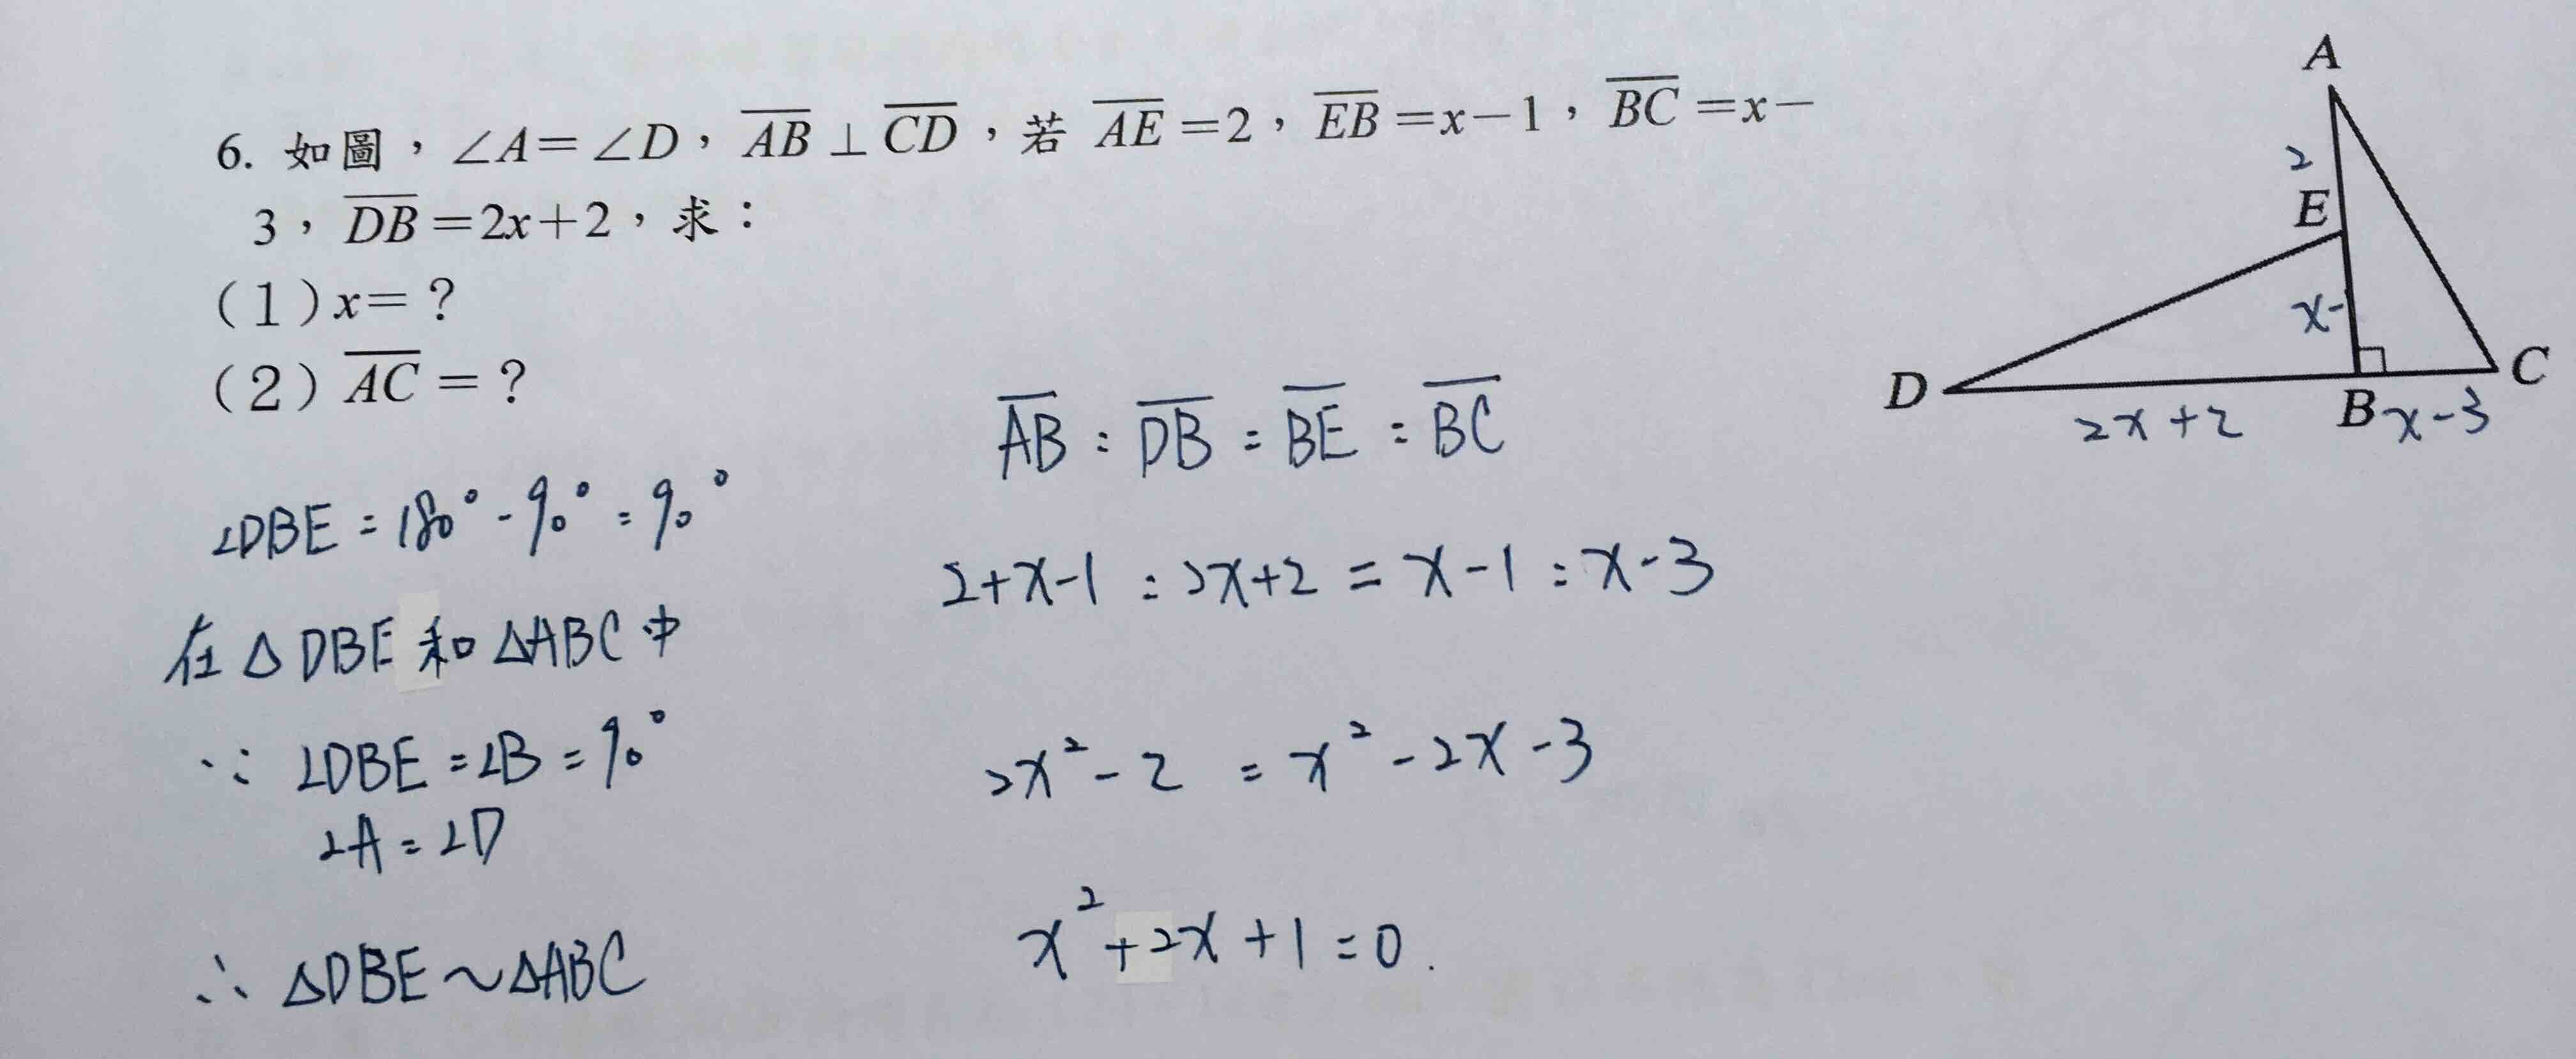 6. 如圖，∠A=∠D，AB⊥CD，若 AE=2，EB=x-1，BC=x-
3，DB=2x+2，求：
(1)x=?
(2)AC=?
A
2
E
x-
D
B
C
2x+2
x-3
∠DBE=180°-90°=90°
在△DBE和△ABC中
∵ ∠DBE=∠B=90°
∠A=∠D
∴ △DBE~△ABC
AB:DB=BE:BC
2+x-1:2x+2=x-1:x-3
2x²-2=x²-2x-3
x²+2x+1=0.